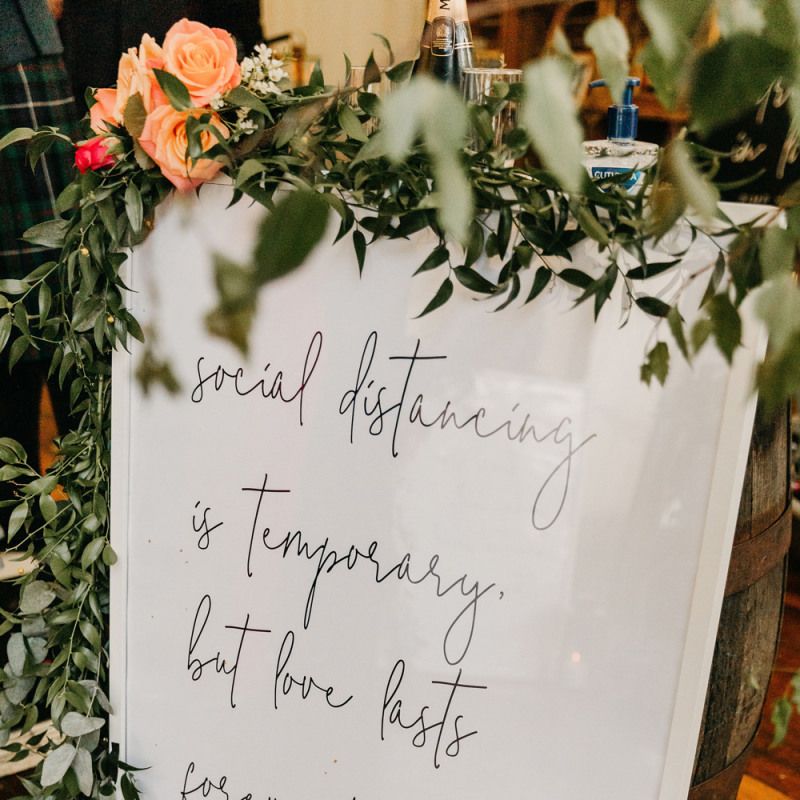 social distancing
is temporary,
but love lasts